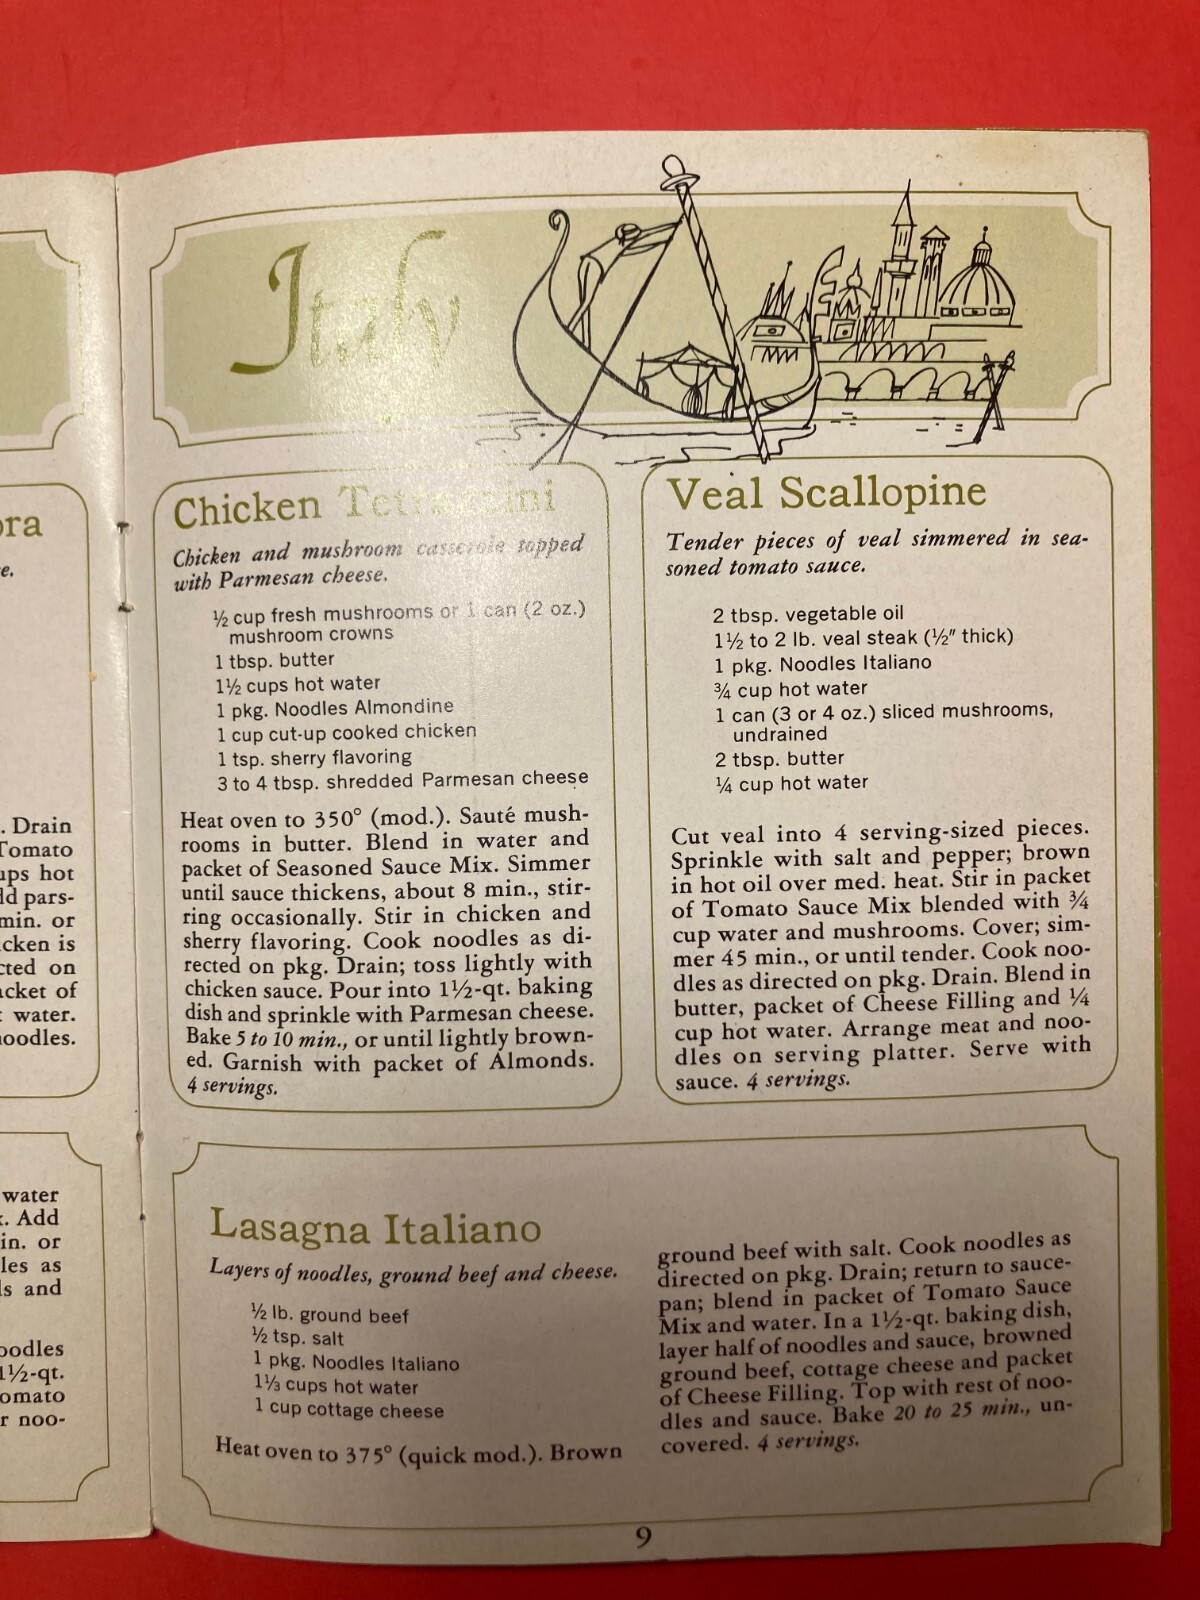 ora
e.
. Drain
Tomato
ups hot
dd pars-
min. or
icken is
cted on
acket of
t water.
noodles.
water
x. Add
in. or
les as
ls and
oodles
1½-qt.
omato
r noo-
Italy
Chicken Tetrazzini
Chicken and mushroom casserole topped
with Parmesan cheese.
½ cup fresh mushrooms or 1 can (2 oz.)
mushroom crowns
1 tbsp. butter
1½ cups hot water
1 pkg. Noodles Almondine
1 cup cut-up cooked chicken
1 tsp. sherry flavoring
3 to 4 tbsp. shredded Parmesan cheese
Heat oven to 350° (mod.). Sauté mush-
rooms in butter. Blend in water and
packet of Seasoned Sauce Mix. Simmer
until sauce thickens, about 8 min., stir-
ring occasionally. Stir in chicken and
sherry flavoring. Cook noodles as di-
rected on pkg. Drain; toss lightly with
chicken sauce. Pour into 1½-qt. baking
dish and sprinkle with Parmesan cheese.
Bake 5 to 10 min., or until lightly brown-
ed. Garnish with packet of Almonds.
4 servings.
Veal Scallopine
Tender pieces of veal simmered in sea-
soned tomato sauce.
2 tbsp. vegetable oil
1½ to 2 lb. veal steak (½" thick)
1 pkg. Noodles Italiano
¾ cup hot water
1 can (3 or 4 oz.) sliced mushrooms,
undrained
2 tbsp. butter
¼ cup hot water
Cut veal into 4 serving-sized pieces.
Sprinkle with salt and pepper; brown
in hot oil over med. heat. Stir in packet
of Tomato Sauce Mix blended with ¾
cup water and mushrooms. Cover; sim-
mer 45 min., or until tender. Cook noo-
dles as directed on pkg. Drain. Blend in
butter, packet of Cheese Filling and ¼
cup hot water. Arrange meat and noo-
dles on serving platter. Serve with
sauce. 4 servings.
Lasagna Italiano
Layers of noodles, ground beef and cheese.
½ lb. ground beef
½ tsp. salt
1 pkg. Noodles Italiano
1⅓ cups hot water
1 cup cottage cheese
Heat oven to 375° (quick mod.). Brown
ground beef with salt. Cook noodles as
directed on pkg. Drain; return to sauce-
pan; blend in packet of Tomato Sauce
Mix and water. In a 1½-qt. baking dish,
layer half of noodles and sauce, browned
ground beef, cottage cheese and packet
of Cheese Filling. Top with rest of noo-
dles and sauce. Bake 20 to 25 min., un-
covered. 4 servings.
9